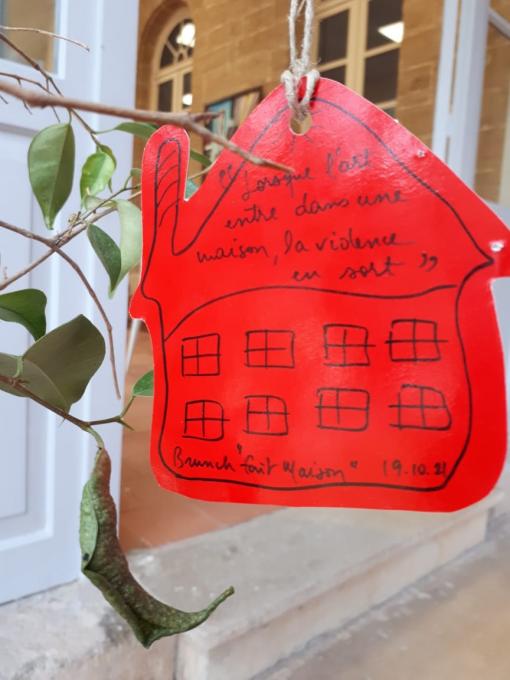 “Lorsque l'art
entre dans une
maison, la violence
en sort”
Brunch "fait Maison" 19.10.21